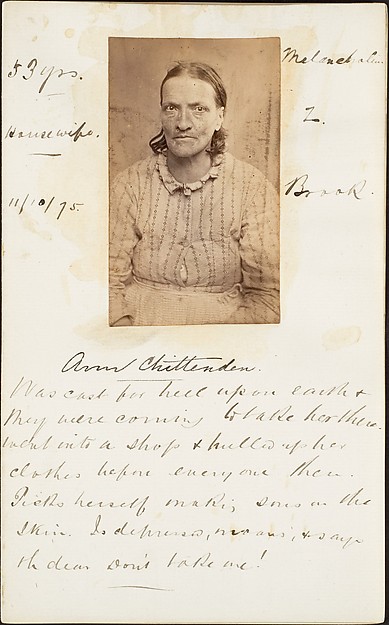 53 yrs.
Housewife.
11/10/75
Melancholia.
2.
Brook.
Ann Chittenden.
Was cast for hell upon earth &
they were coming to take her there.
went into a shop & pulled up her
clothes before everyone there.
Picks herself making sores on the
skin. Is depressed, moans, & says
oh dear Don't take me!